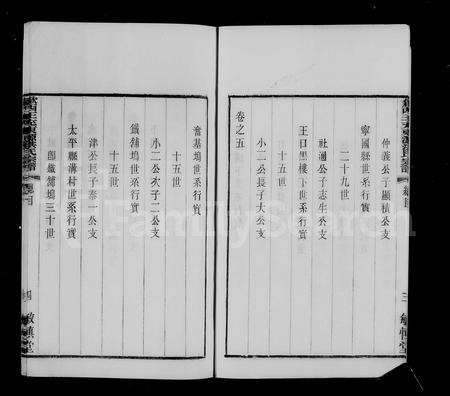 仲義公子顯積公支
寧國縣世系行實
二十九世
社迪公子志生公支
王口黑樓下世系行實
十五世
小二公長子大公支
卷之五
三
敏慎堂
奮基塢世系行實
十五世
小二公次子二公支
鐵舖塢世系行實
十五世
津公長子泰一公支
太平縣溝村世系行實
即鐵舖塢三十世
四
敏慎堂
FamilySearch